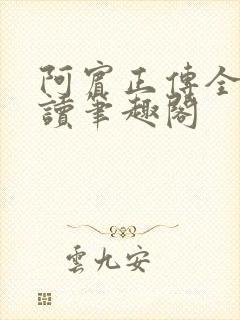 阿賓正傳全
讀筆趣閣
雲九安